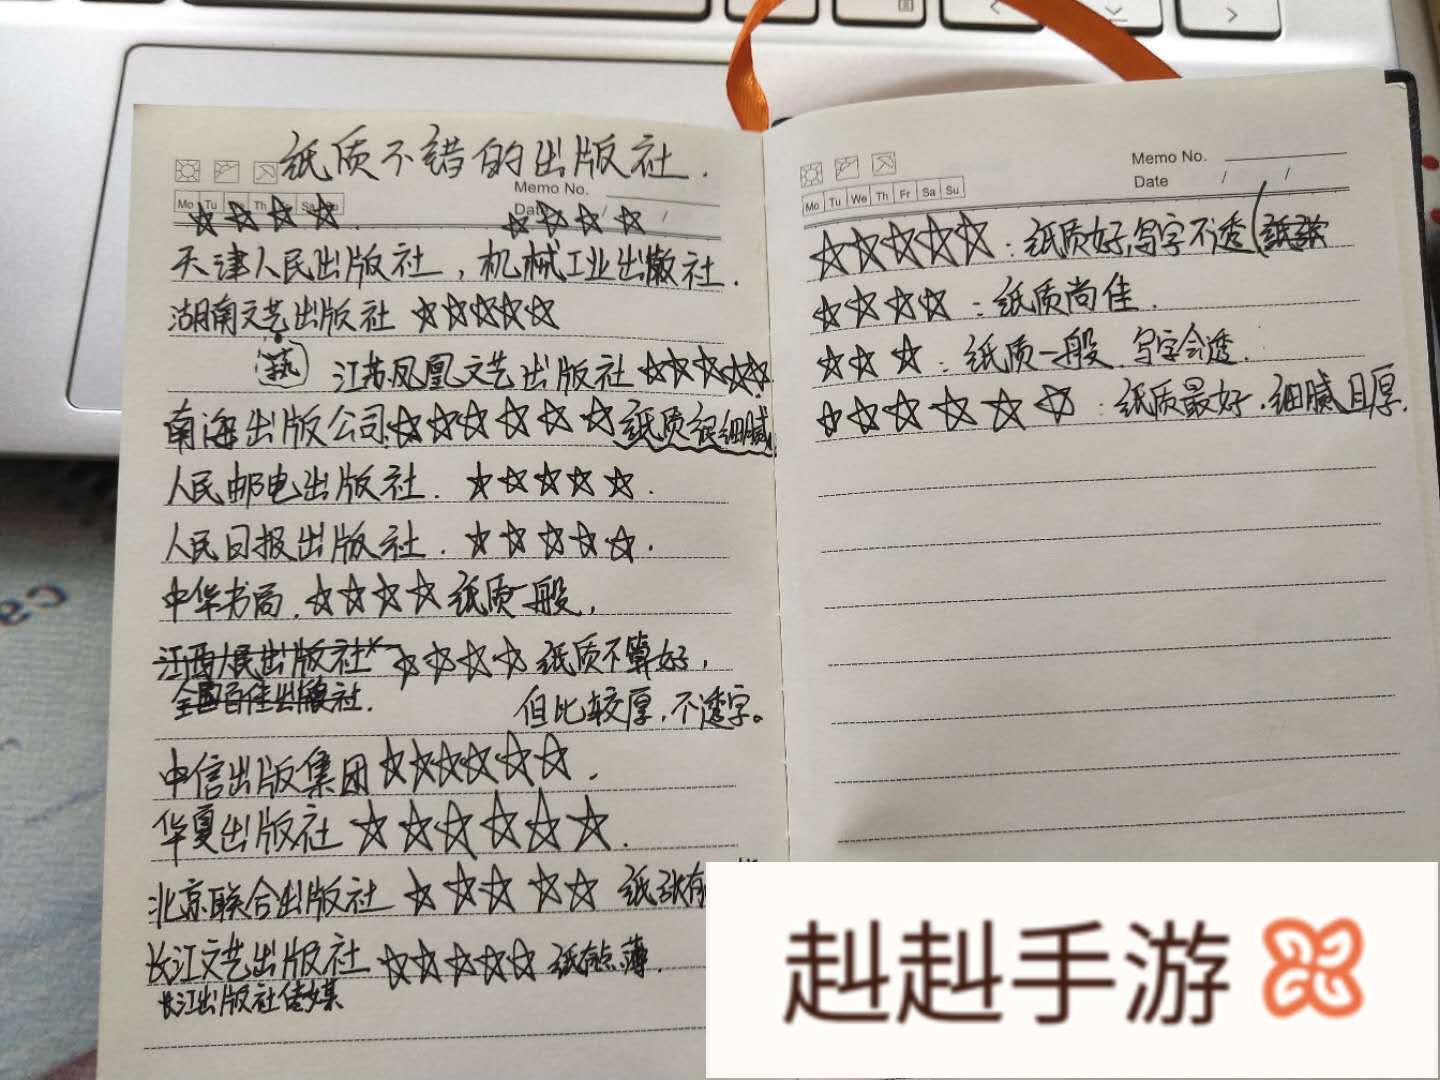 纸质不错的出版社.
Memo No.
Mo Tu Th Sa
Date / /
☆☆☆☆. ☆☆☆☆
天津人民出版社, 机械工业出版社.
湖南文艺出版社 ☆☆☆☆☆
江苏凤凰文艺出版社 ☆☆☆☆☆
南海出版公司 ☆☆☆☆☆☆ 纸质很细腻
人民邮电出版社. ☆☆☆☆☆.
人民日报出版社. ☆☆☆☆☆.
中华书局. ☆☆☆☆ 纸质一般,
江西人民出版社 ☆☆☆☆ 纸质不算好,
全国百佳出版社. 但比较厚,不透字。
中信出版集团 ☆☆☆☆☆☆.
华夏出版社 ☆☆☆☆☆☆.
北京联合出版社 ☆☆☆☆☆ 纸张有
长江文艺出版社 ☆☆☆☆☆ 纸有点薄.
长江出版社传媒
Memo No.
Mo Tu We Th Fr Sa Su
Date / /
☆☆☆☆☆: 纸质好,写字不透(
☆☆☆☆: 纸质尚佳.
☆☆☆: 纸质一般,写字会透.
☆☆☆☆☆☆: 纸质最好,细腻且厚.
赳赳手游